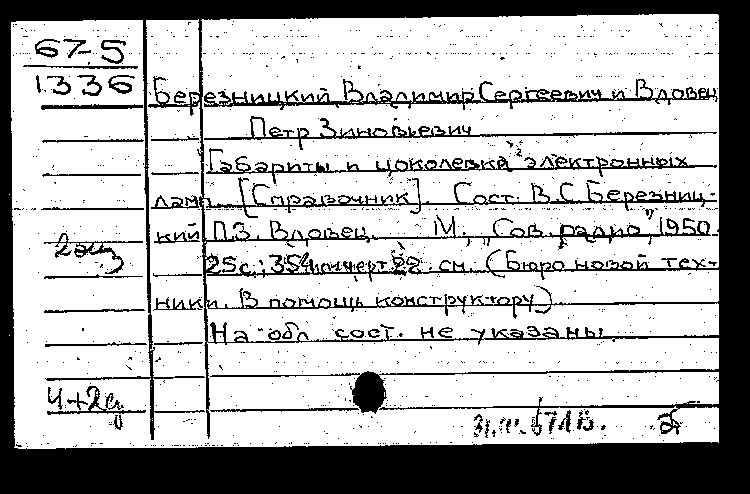 67-5
1336
Березницкий, Владимир Сергеевич и Вдовец
Петр Зиновьевич
Габариты и цоколевка электронных
ламп. [Справочник]. Сост. В.С. Березниц-
кий П.З. Вдовец. М., "Сов. радио", 1950.
2 экз
25 с.; 22 см. (Бюро новой тех-
ники. В помощь конструктору)
На обл. сост. не указаны